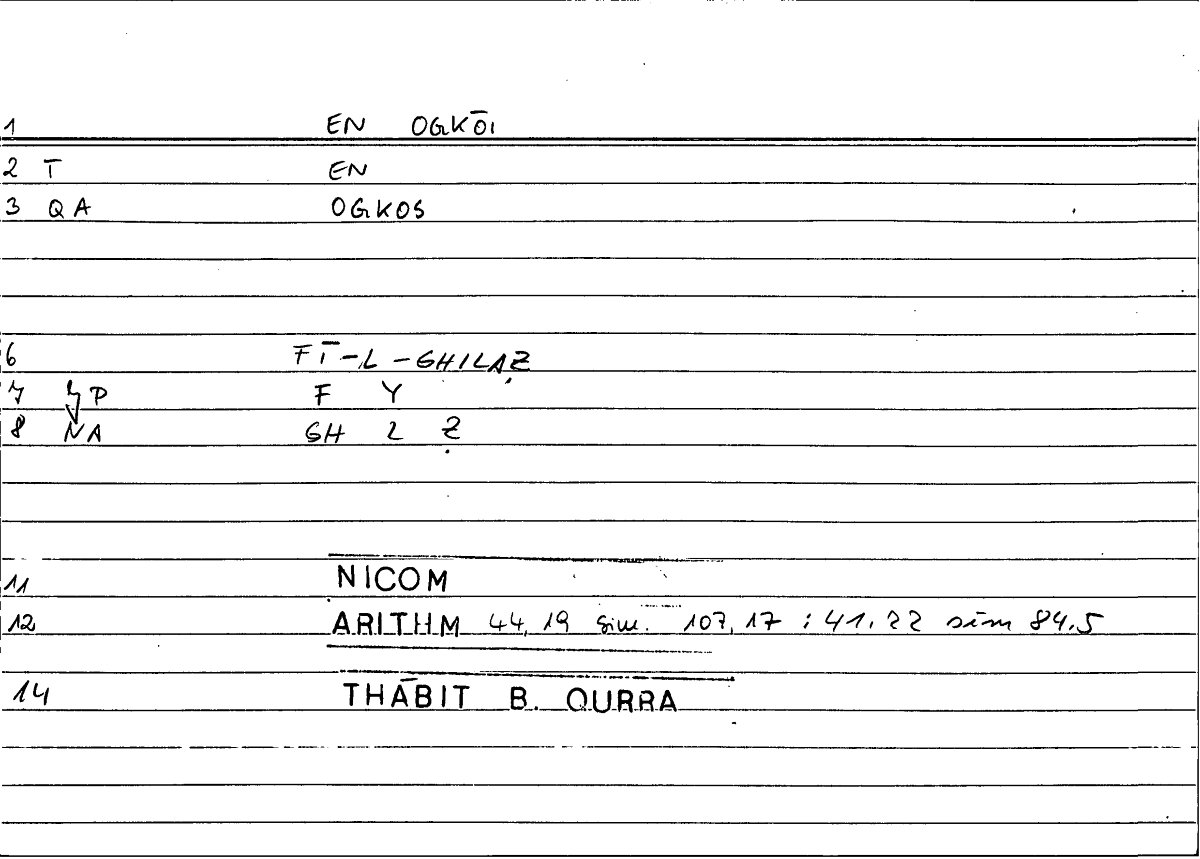 1 EN OGKŌI
2 T EN
3 QA OGKOS
6 FĪ-L-GHILAẒ
7 P F Y
8 NA GH L Ẓ
11 NICOM
12 ARITHM 44,19 sim. 107,17 : 41.22 sim 84.5
14 THĀBIT B. QURRA